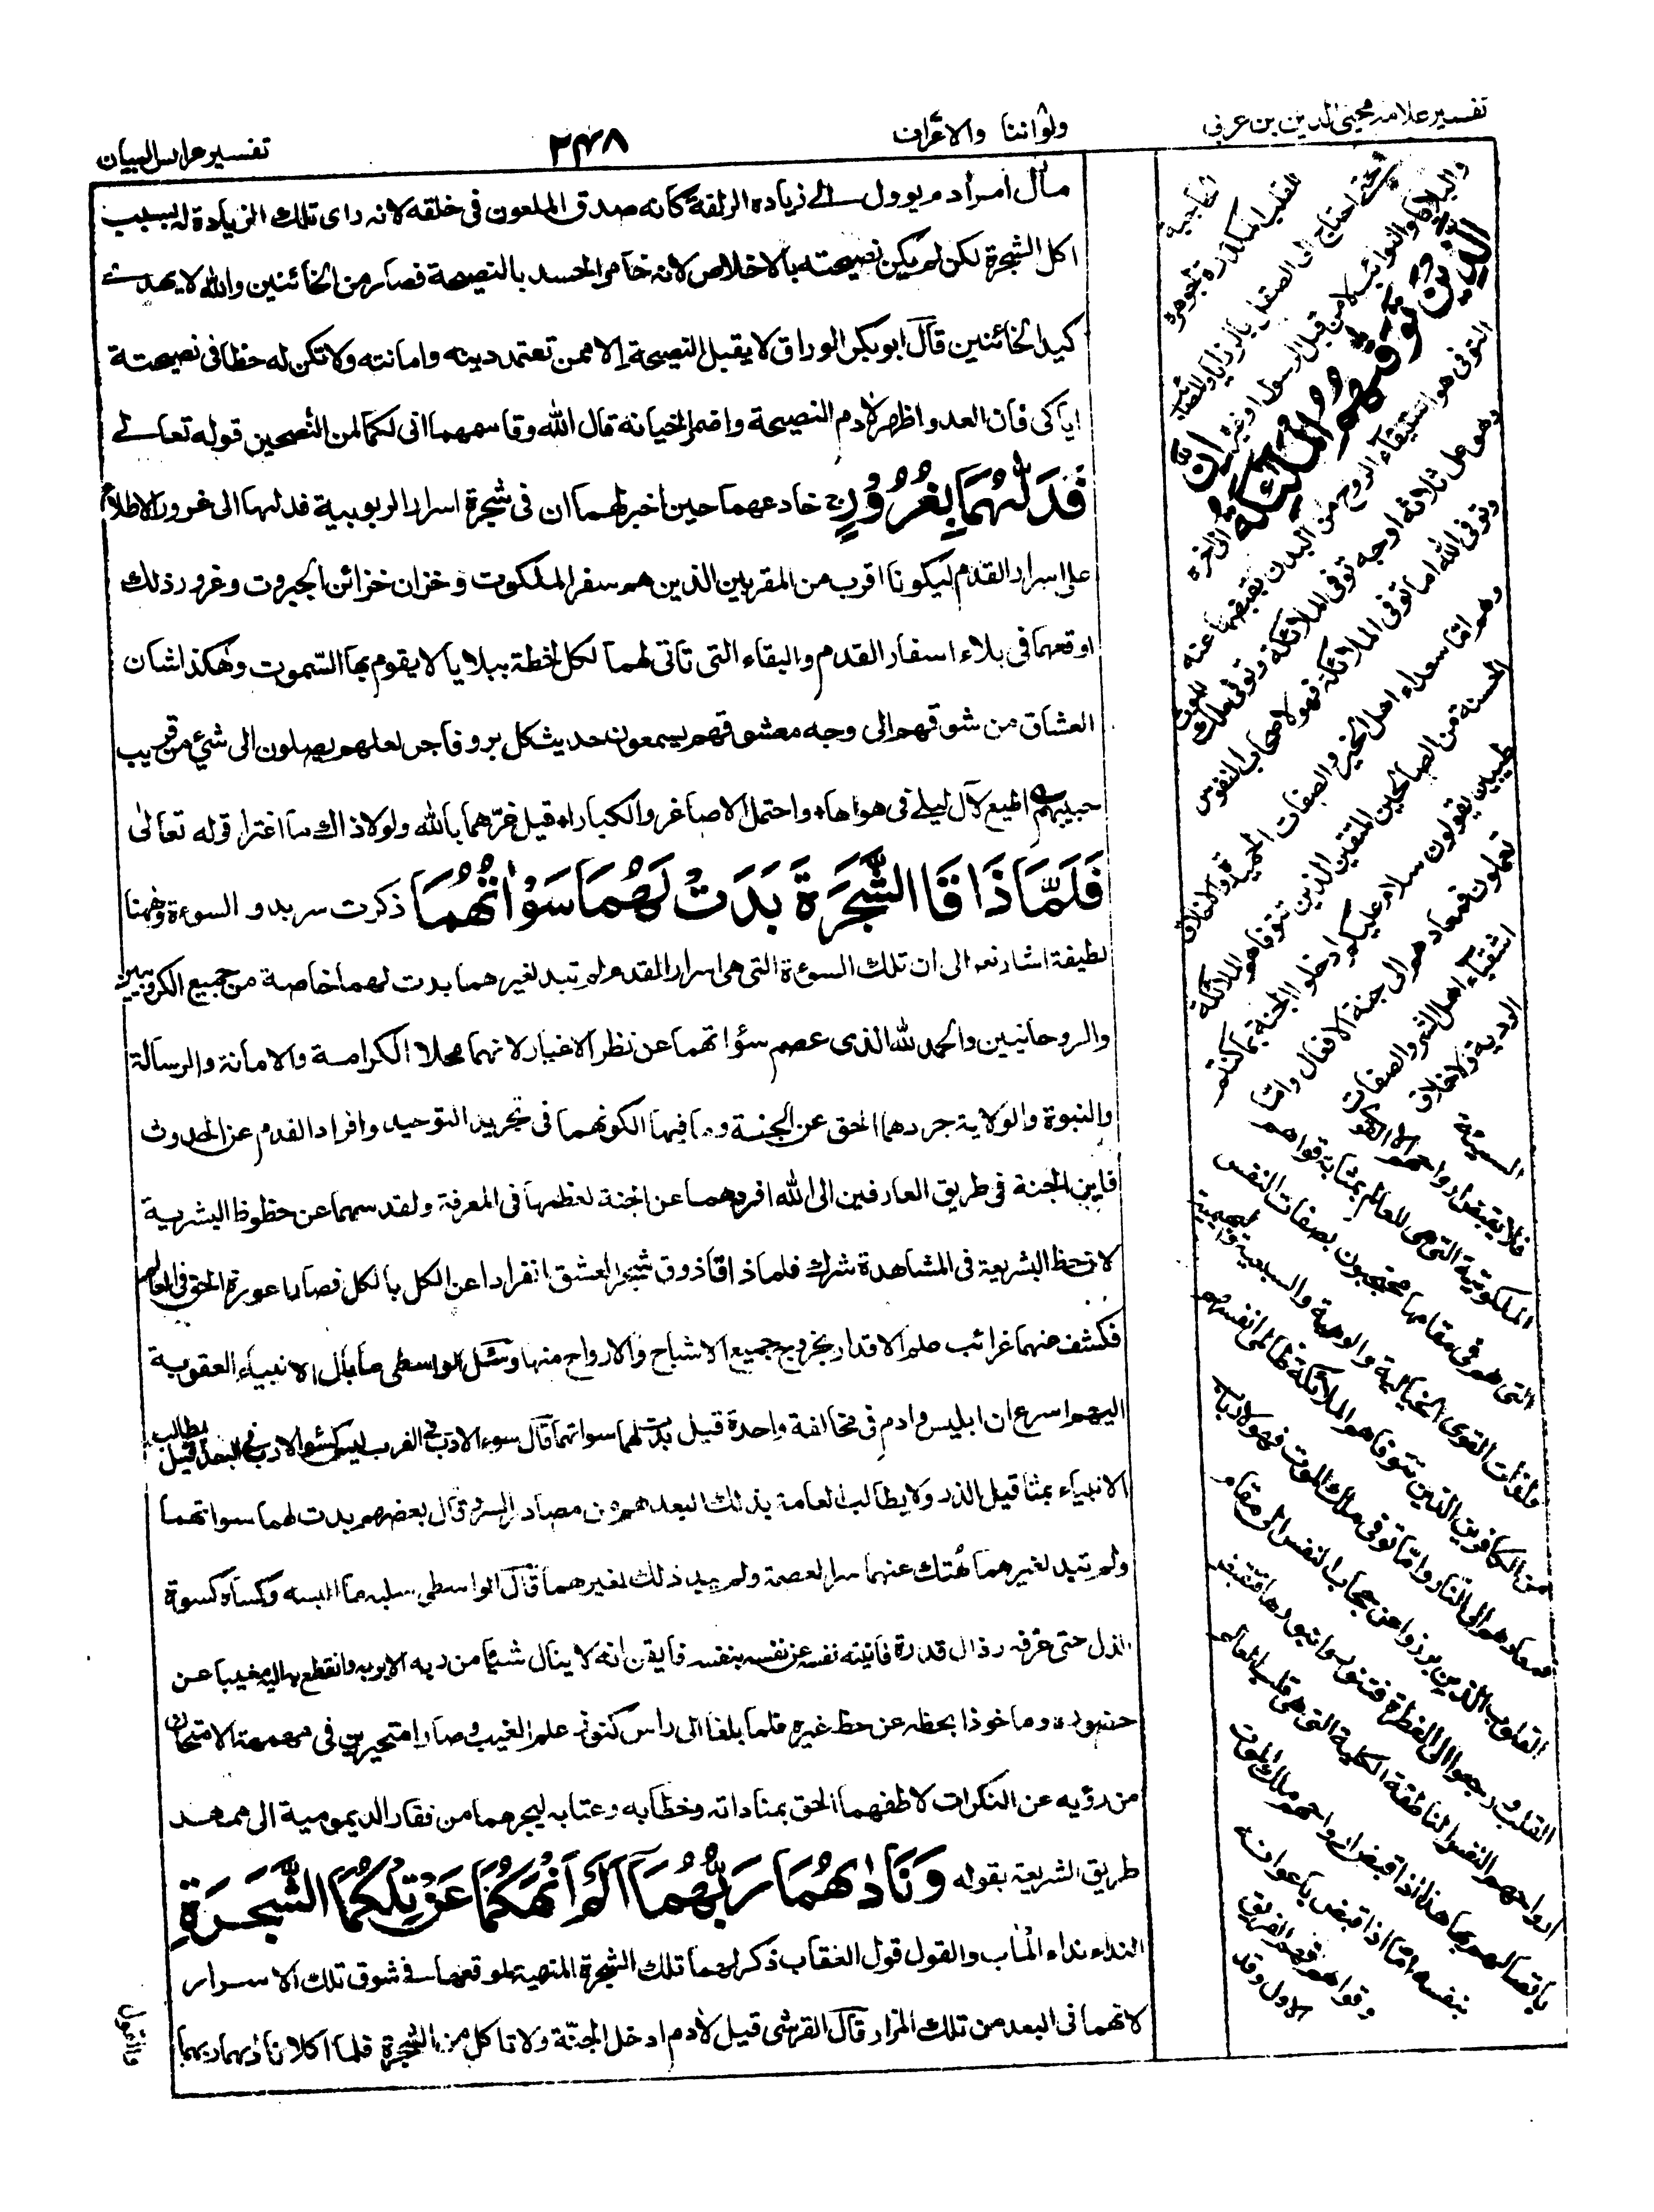 تفسير علامه محيي الدين بن عربي
ولواننا والاعراف
٢٤٨
تفسير عرايس البيان
مآل امر ادم يوول الى زيادة الزلفة كانه صدق الملعون في خلقه لانه راى تلك الزيادة له بسبب
اكل الشجرة لكن لم يكن نصيحته بالاخلاص لانه خامر الحسد بالنصيحة فصار من الخائنين والله لا يهدى
كيد الخائنين قال ابو بكر الوراق لا يقبل النصيحة الا ممن تعتمد دينه وامانته ولا تكن له حظا في نصيحتة
اياكى فان العدو اظهر لادم النصيحة واضمر الخيانة قال الله وقاسمهما انى لكما لمن النصحين قوله تعالى
فَدَلّٰهُمَا بِغُرُوْرٍ خادعهما حين اخبر لهما ان في شجرة اسرار الربوبية فدلهما الى غرور الاطلاع
على اسرار القدم ليكونا اقرب من المقربين الذين هم سفر الملكوت وخزان خزائن الجبروت وغرور ذلك
اوقعهما في بلاء اسفار القدم والبقاء التى تاتى لهما لكل لحظة ببلايا لا يقوم بها السموت وهكذا شان
العشاق من شوقهم الى وجه معشوقهم يسمعون حديث كل بر وفاجر لعلهم يصلون الى شيء من قريب
حبيبهم اطيع لآل ليلى في هواها واحتمل الاصاغر والكبارا قيل غرّهما بالله ولولا ذاك ما اغترا قوله تعالى
فَلَمَّا ذَاقَا الشَّجَرَةَ بَدَتْ لَهُمَا سَوْاٰتُهُمَا ذكرت سر بدو السوءة وههنا
لطيفة اشارته الى ان تلك السوءة التى هى اسرار القدم لم تبد لغيرهما بدت لهما خاصة من جميع الكروبيين
والروحانيين والحمد لله الذى عصم سؤاتهما عن نظر الاغيار لانهما محلا الكرامة والامانة والرسالة
والنبوة والولاية جردهما الحق عن الجنة وما فيها لكونهما في تجريد التوحيد وافراد القدم عن الحدوث
فاين الجنة في طريق العارفين الى الله افردهما عن الجنة لعظمها في المعرفة ولقدسهما عن حظوظ البشرية
لان حظ البشرية في المشاهدة شرك فلما ذاقا ذوق شجر العشق انفردا عن الكل بالكل فصارا عورة الحق في العالم
فكشف عنهما غرائب علم الاقدار بخروج جميع الاشباح والارواح منها وسئل الواسطى ما بال الانبياء العقوبة
اليهم اسرع ان ابليس وادم في مخالفة واحدة قيل بدت لهما سواتهما قال سوء الادب في القرب ليس كسوء الادب في البعد قيل يطالب
الانبياء بمثاقيل الذر ولا يطالب العامة بذلك لبعدهم من مصادر السر وقال بعضهم بدت لهما سواتهما
ولم تبد لغيرهما هُتك عنهما ستر العصمة ولم يبد ذلك لغيرهما قال الواسطى سلبه ما البسه وكساه كسوة
الذل حتى عرفه قدرة نفسه عن نفسه بنفسه فايقن انه لا ينال شيئا من ربه الا بربه وانقطع به اليه مغيبا عن
حضوره وماخوذا بحظه عن حظ غيره فلما بلغا الى راس كنوز علم الغيب وصارا متحيرين في مهمهة الامتحان
من رؤيه عن النكرات لاطفهما الحق بمناداته وخطابه وعتابه ليجرهما من قفار الديمومية الى ممهد
طريق الشريعة بقوله وَنَادٰىهُمَا رَبُّهُمَآ اَلَمْ اَنْهَكُمَا عَنْ تِلْكُمَا الشَّجَرَةِ
النداء نداء المآب والقول قول العقاب ذكر لهما تلك الشجرة المنهية لموقعهما في شوق تلك الاسرار
لانهما في البعد من تلك المزار قال القرشى قيل لادم ادخل الجنّة ولا تاكل من الشجرة فلما اكلا ناداهما ربهما
اِنَّ الَّذِيْنَ تَوَفّٰىهُمُ الْمَلٰٓئِكَةُ الى اخره
التوفى هو استيفاء الروح من البدن بقبضها عنه
وهو على ثلاثة اوجه توفى الملائكة وتوفى ملك الموت
وتوفى الله اما توفى الملائكة فهو لاصحاب النفوس
وهم اما سعداء اهل الخير والصفات الحميدة والاخلاق
الحسنة من الصالحين المتقين الذين تتوفاهم الملائكة
طيبين يقولون سلام عليكم ادخلوا الجنة بما كنتم
تعملون فمعادهم الى جنة الافعال واما
اشقياء اهل الشر والصفات
الردية والاخلاق
السيئة
فلا يقبض ارواحهم الا القوى
الملكوتية التى هى للعالم بمثابة قواهم
التى هم في مقامها محتجبون بصفات النفس
ولذات القوى الخيالية والوهمية والسبعية والبهيمية
من الكافرين الذين تتوفاهم الملائكة ظالمى انفسهم
فمعادهم الى النار واما توفى ملك الموت فهو لارباب
القلوب الذين برزوا عن حجاب النفس الى مقام
القلب ورجعوا الى الفطرة فتنورت بنورها فتقبض
ارواحهم النفس الناطقة الكلية التى هى قلب العالم
باتصالهم بها هذا اذا قبض ارواحهم ملك الموت
بنفسه اما اذا قبض باعوانه
وقواهم فهم الفريق
الاول وقد